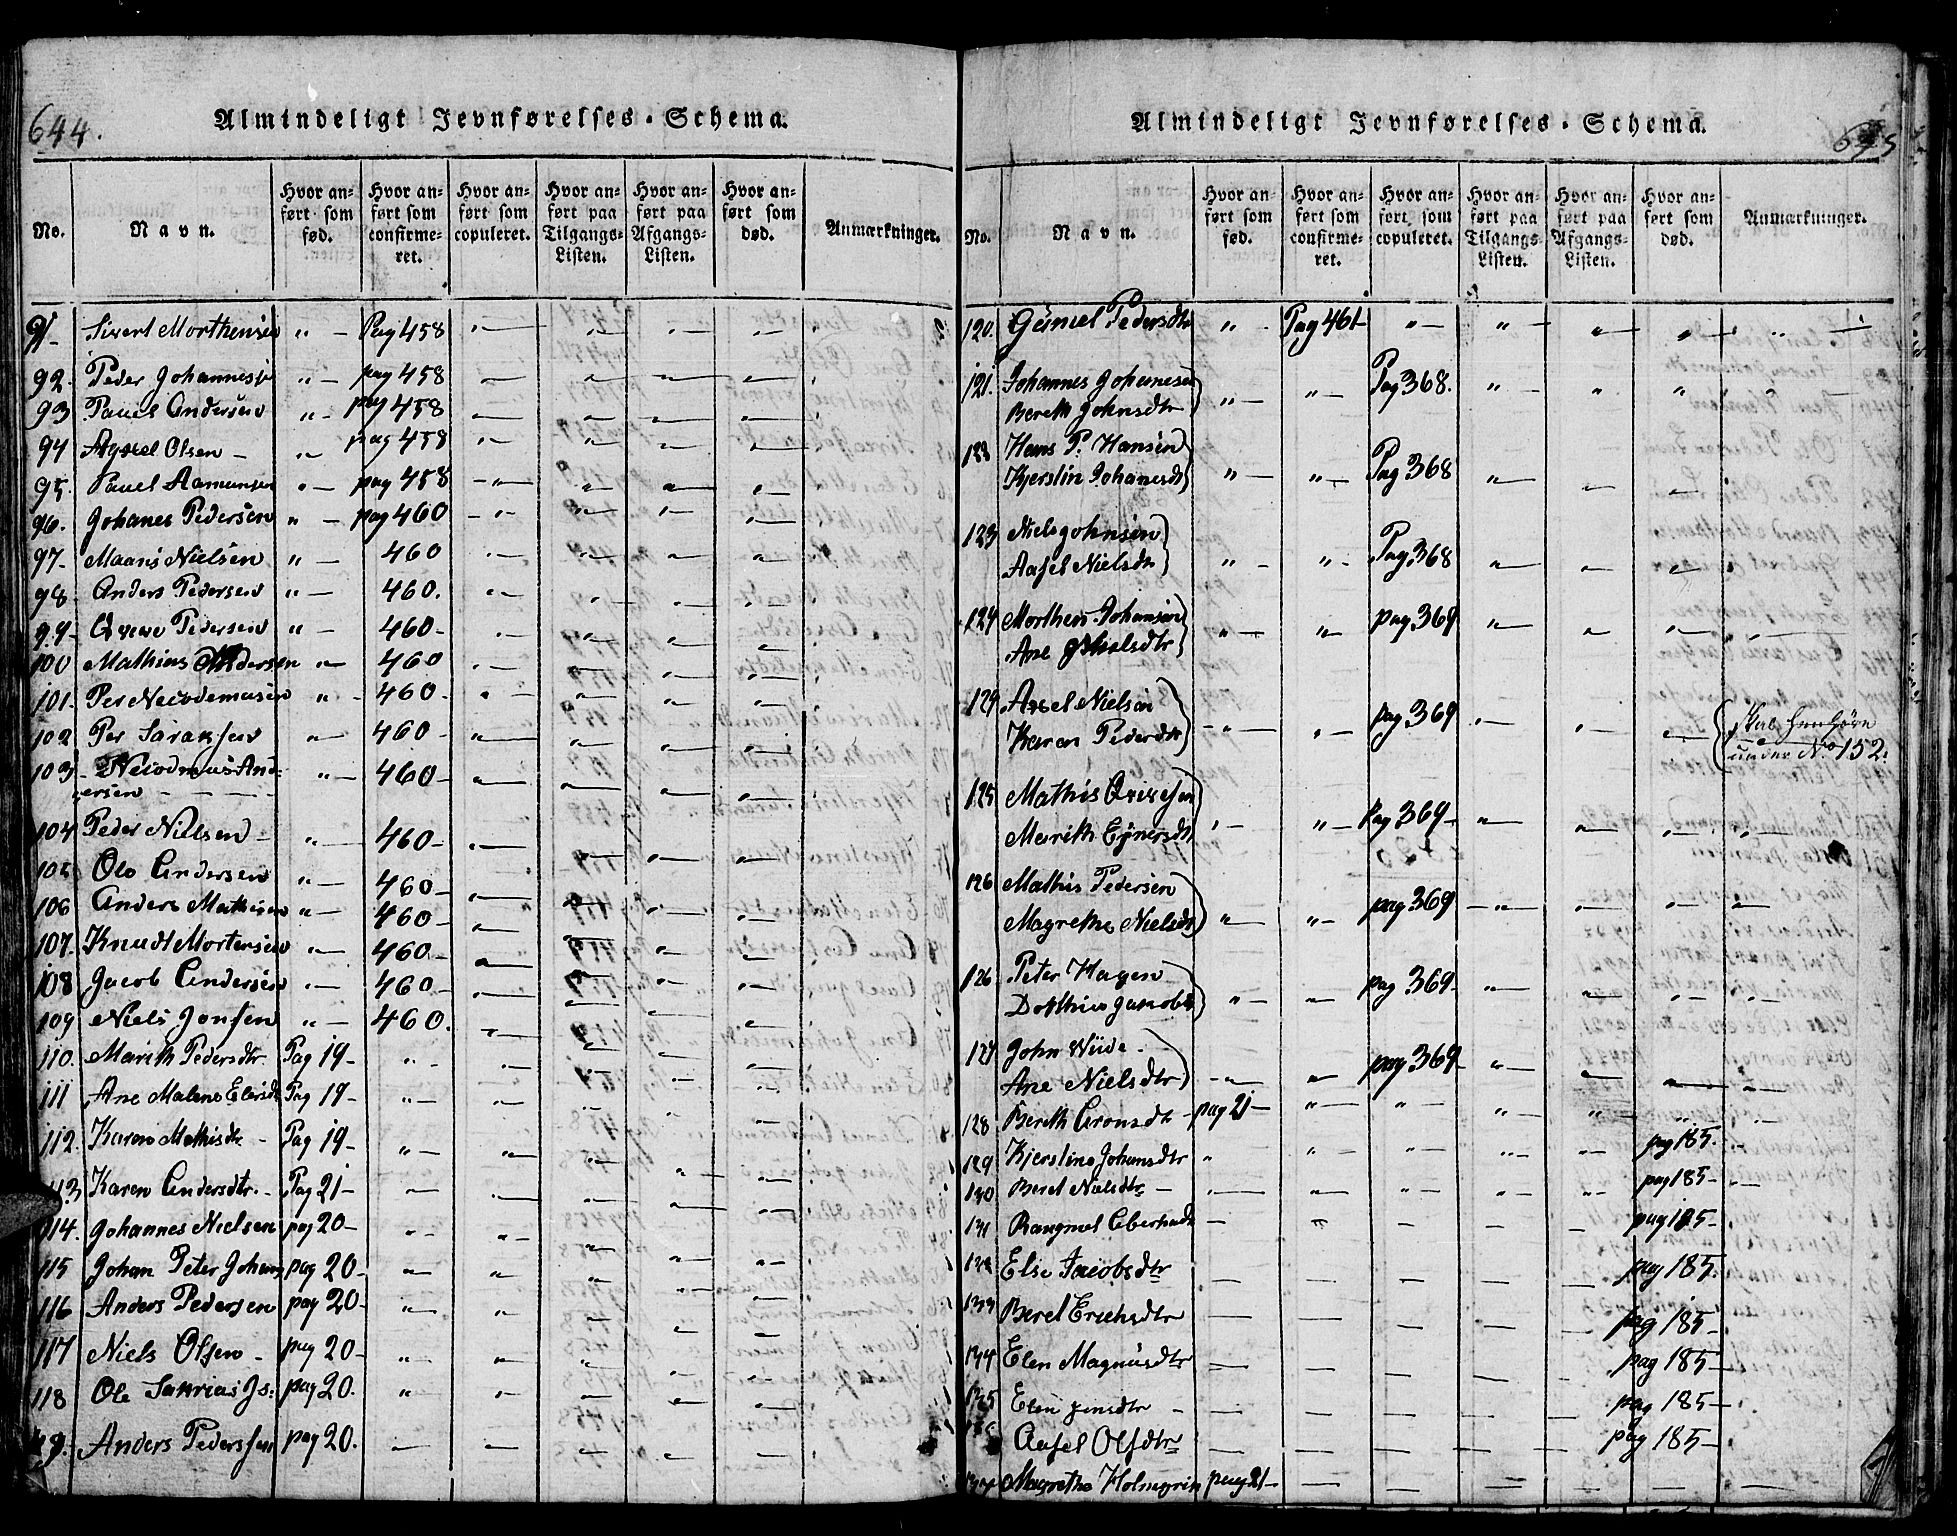 644.
Almindeligt Jevnførelses-Schema.
No.
Navn.
Hvor anført som fød.
Hvor anført som confirmeret.
Hvor anført som copuleret.
Hvor anført paa Tilgangs-Listen.
Hvor anført paa Afgangs-Listen.
Hvor anført som død.
Anmærkninger.
91 Sivert Morthensen " — Pag 458
92. Peder Johannes " — pag 458
93 Pauel Andersen " - pag 458
94 Olsen — " pag 458
95. Pauel Aamunsen " — pag 458
96. Johanes Pedersen " — pag 460
97- Maans Nielsen " — 460
98 Anders Pedersen " — 460.
99- Pedersen " — 460-
100 Mathias Andersen " 460
101. Per Necodemusen " 460-
102 Per " 460-
103- Necodmus And- " — 460-
ersen
104 Peder Nielsen — " 460-
105 Ole Andersen " — 460-
106 Anders Mathisen " — 460-
107. Knudt Mortensen " — 460-
108 Jacob Andersen " — 460-
109 Niels Jonsen " — 460.
110. Marith Pedersdtr Pag 19-
111 Ane Malene Pag 19-
112. Karen Mathisdtr - Pag 19-
113 Karen Andersdtr. - Pag 21-
114. Johannes Nielsen pag 20-
115 Johan Peter Johans pag 20-
116 Anders Pedersen pag 20-
117 Niels Olsen - pag 20-
118 Ole Sakrias Js: pag 20.
119. Anders Pederssen pag 20.
645
Almindeligt Jevnførelses-Schema.
No.
Navn.
Hvor anført som fød.
Hvor anført som confirmeret.
Hvor anført som copuleret.
Hvor anført paa Tilgangs-Listen.
Hvor anført paa Afgangs-Listen.
Hvor anført som død.
Anmærkninger.
120. Gunnel Pedersdtr " - Pag 461
121. Johannes Johannesen
Bereth Johnsdtr " — " — Pag 368.
Hans P. Hansen
Kjerstin Johanesdtr " — " — Pag 368
123 Niels Johnsen
Aasel Nielsdtr " - " - Pag. 368
124 Morthen Johansen
Ane dtr " — " pag 369
129 Axel Nielsen
Karen Pedersdtr " pag 369
skal henføre
under No 152.
125 Mathis
Marith pag 369-
126 Mathis Pedersen
Magrethe Nielsdtr " " pag 369
126 Peter Hagen
Dorthea Jakobsdtr pag 369-
127 John
Ane Nielsdtr pag 369-
128 Bereth Aronsdtr pag 21-
129 Kjerstine Johansdtr pag 185.
130 Beret Nielsdtr — pag 185-
131 Rangnel pag 185-
132 Else Jacobsdtr pag 185.
133 Beret Erichsdtr pag 185-
134 Elen Magnusdtr pag 185-
135 Elen Jensdtr - pag 185-
136 Aasel Olsdtr pag 185-
137 Magrethe Holmgrin pag 21-